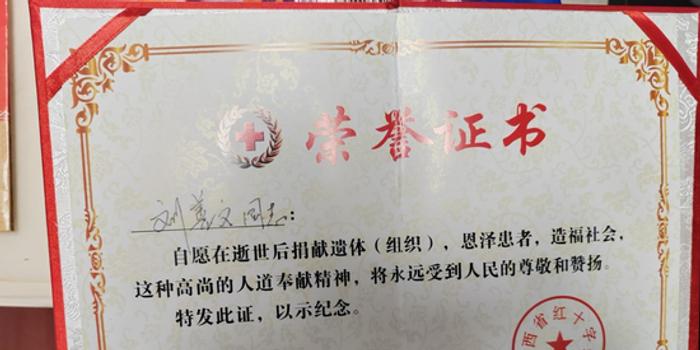 荣誉证书
刘英文同志：
自愿在逝世后捐献遗体（组织），恩泽患者，造福社会，
这种高尚的人道奉献精神，将永远受到人民的尊敬和赞扬。
特发此证，以示纪念。
西省红十字